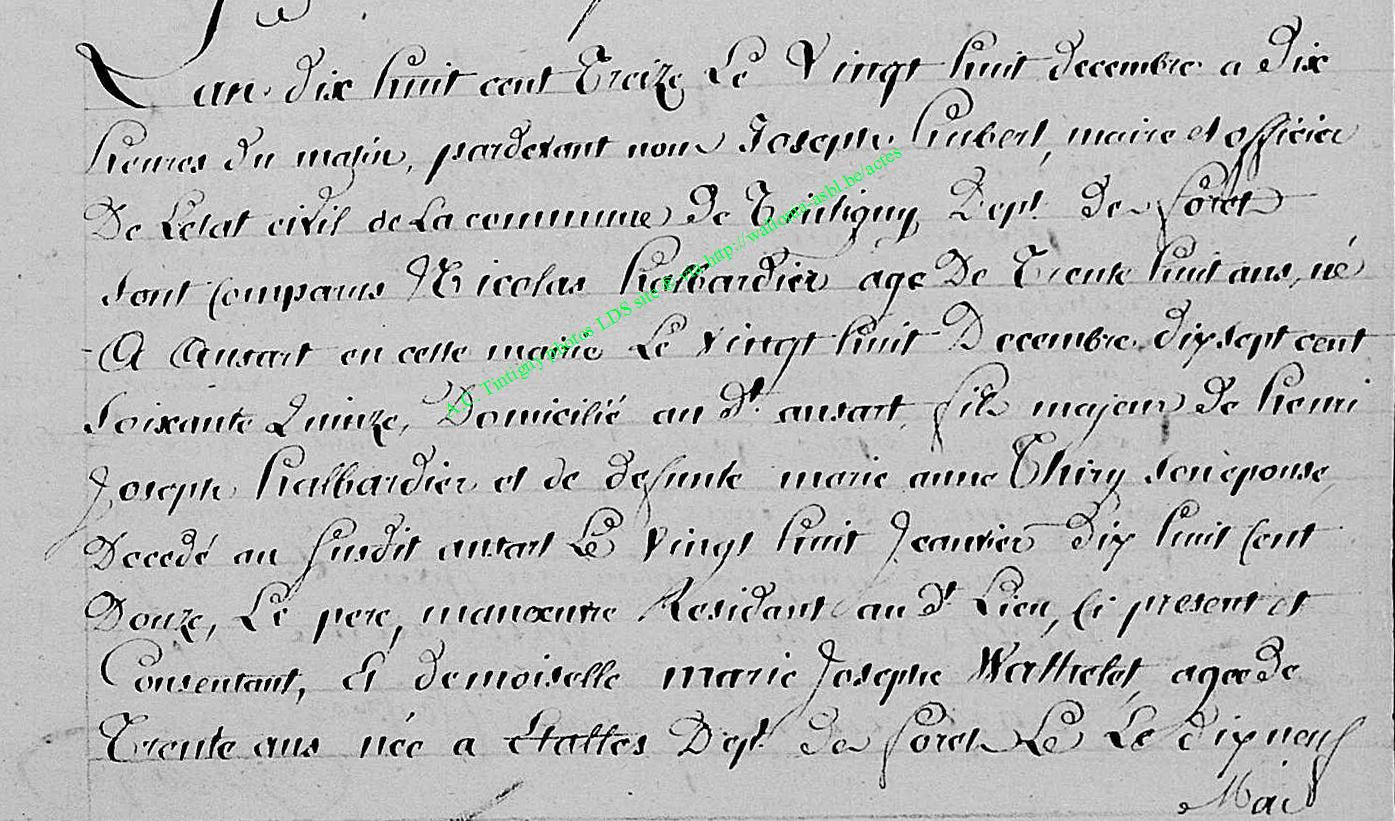 Lan dix huit cent Treize Le Vingt huit decembre a dix
heures du matin, pardevant nous Joseph hubert, maire et officier
De Létat civil de La commune de Tintigny Dept. de foret
sont comparus Nicolas halbardier age De Trente huit ans, né
A Ansart en cette mairie Le vingt huit Decembre dix sept cent
Soixante Quinze, Domicilié au dt. ansart, fils majeur de henri
Joseph halbardier et de defunte marie anne Thiry son epouse,
Decedé au susdit ansart Le vingt huit Jeanvier Dix huit Cent
Douze, Le pere, manoeuvre Residant au dt Lieu, Ci present et
Consentant, Et demoiselle marie Joseph Wathelet, agee de
Trente ans née a Etalles Dept. de foret Le Le dix neuf
Mai
A.C. Tintigny photos LDS site via http://wallonia-asbl.be/actes